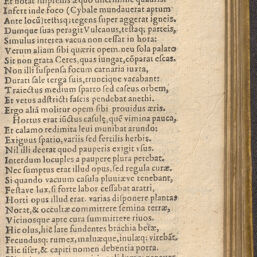 Infert inde foco (Cybale mundauerat aptum
Ante locū) testisq; tegens super aggerat igneis.
Dumque suas peragit Vulcanus, testaq; parteis,
Simulus interea vacua non cessat in hora:
Verum aliam sibi quærit opem. neu sola palato
Sit non grata Ceres, quas iungat, cōparat escas.
Non illi suspensa focum carnaria iuxta,
Durati sale terga suis, truncique vacabant:
Traiectus medium sparto sed caseus orbem,
Et vetus adstricti fascis pendebat anethi.
Ergo aliā molitur opem sibi prouidus æris.
Hortus erat iūctus casulę, quē vimina pauca,
Et calamo rediuiua leui munibat arundo:
Exiguus spatio, variis sed fertilis herbis.
Nil illi deerat quod pauperis exigit vsus.
Interdum locuples a paupere plura petebat.
Nec sumptus erat illud opus, sed regula curæ:
Si quando vacuum casula pluuiæve tenebant,
Festave lux, si forte labor cessabat aratri,
Horti opus illud erat. varias disponere plantas
Norat, & occultæ committere semina terræ,
Vicinosque apte cura summittere riuos.
Hic olus, hic late fundentes brachia betæ,
Fecundusq; rumex, maluæque, inulæq; virebāt.
Hic siser, & capiti nomen debentia porra.